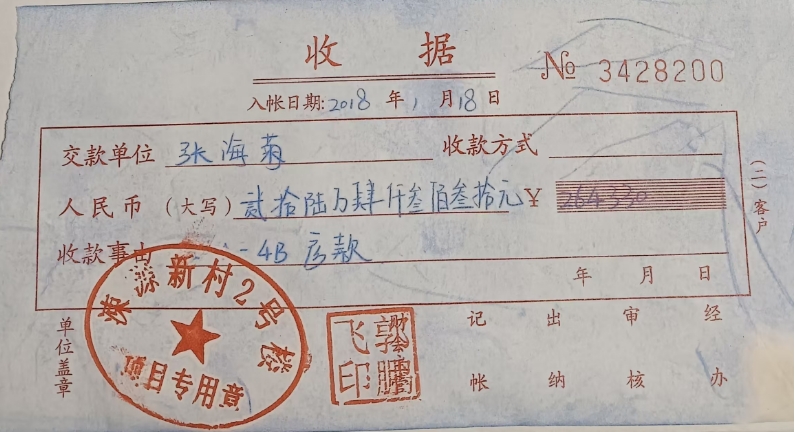 收 据
№ 3428200
入帐日期:2018年1月18日
交款单位 张海菊 收款方式
人民币(大写)贰拾陆万肆仟叁佰叁拾元¥264330
收款事由 -4B房款
年 月 日
(二)客户
单位盖章
新村2号楼
项目专用章
飞印
财会专用章
记帐 出纳 审核 经办